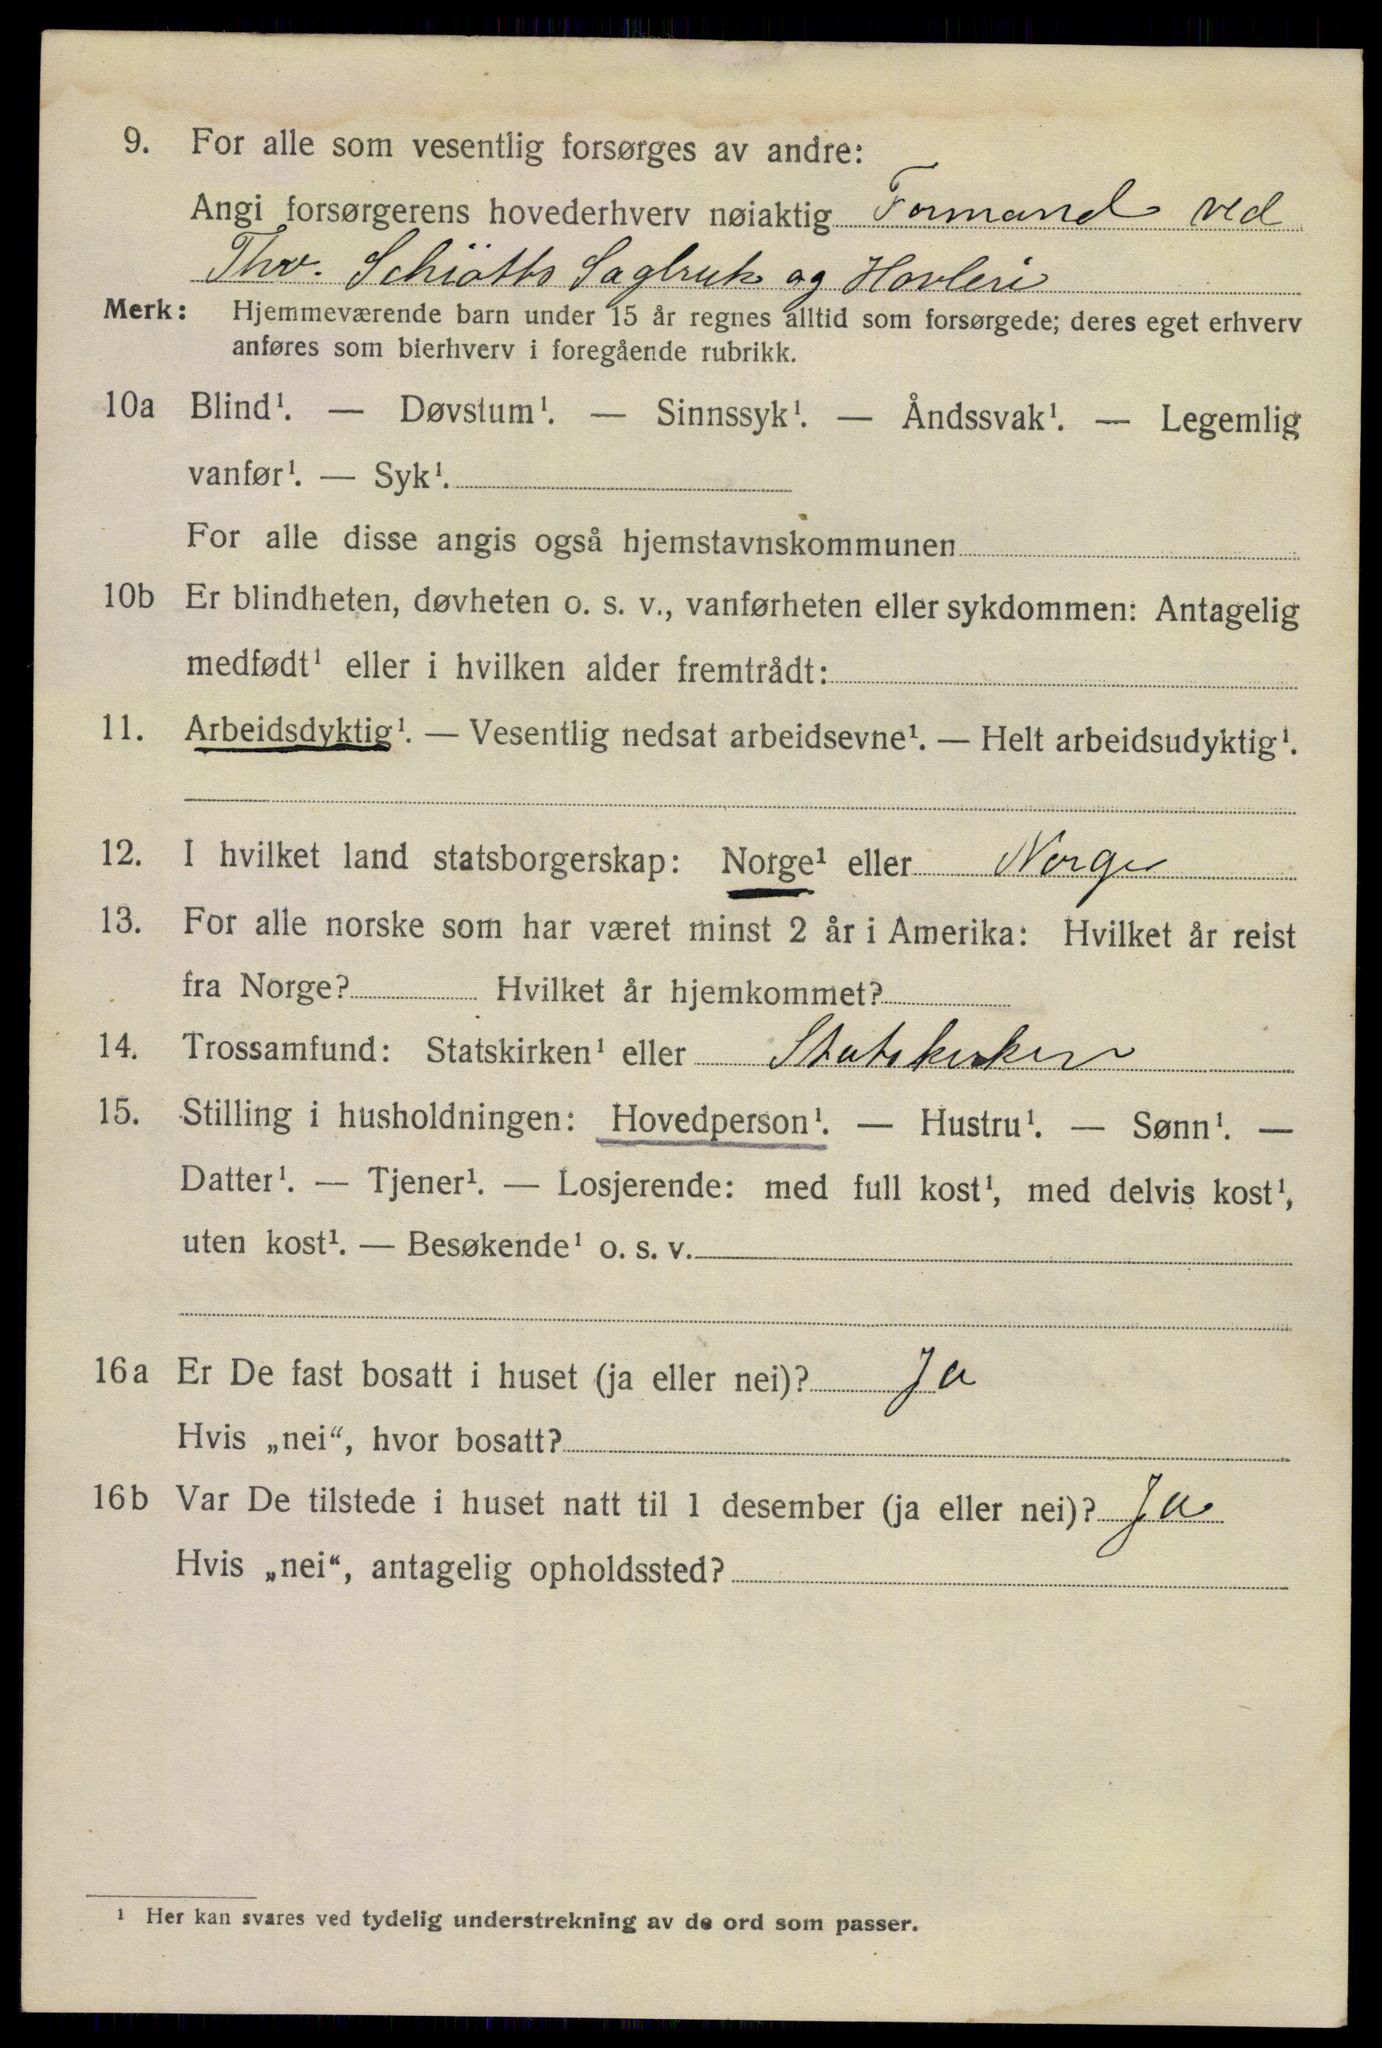 9. For alle som vesentlig forsørges av andre:
Angi forsørgerens hovederhverv nøiaktig Formand ved
Thv. Schiøtts Sagbruk og Høvleri
Merk: Hjemmeværende barn under 15 år regnes alltid som forsørgede; deres eget erhverv
anføres som bierhverv i foregående rubrikk.
10a Blind¹. — Døvstum¹. — Sinnssyk¹. — Åndssvak¹. — Legemlig
vanfør¹. — Syk¹.
For alle disse angis også hjemstavnskommunen
10b Er blindheten, døvheten o. s. v., vanførheten eller sykdommen: Antagelig
medfødt¹ eller i hvilken alder fremtrådt:
11. Arbeidsdyktig¹. — Vesentlig nedsat arbeidsevne¹. — Helt arbeidsudyktig¹.
12. I hvilket land statsborgerskap: Norge¹ eller Norge
13. For alle norske som har været minst 2 år i Amerika: Hvilket år reist
fra Norge? Hvilket år hjemkommet?
14. Trossamfund: Statskirken¹ eller Statskirken
15. Stilling i husholdningen: Hovedperson¹. — Hustru¹. — Sønn¹. —
Datter¹. — Tjener¹. — Losjerende: med full kost¹, med delvis kost¹,
uten kost¹. — Besøkende¹ o. s. v.
16a Er De fast bosatt i huset (ja eller nei)? Ja
Hvis „nei“, hvor bosatt?
16b Var De tilstede i huset natt til 1 desember (ja eller nei)? Ja
Hvis „nei“, antagelig opholdssted?
¹ Her kan svares ved tydelig understrekning av de ord som passer.